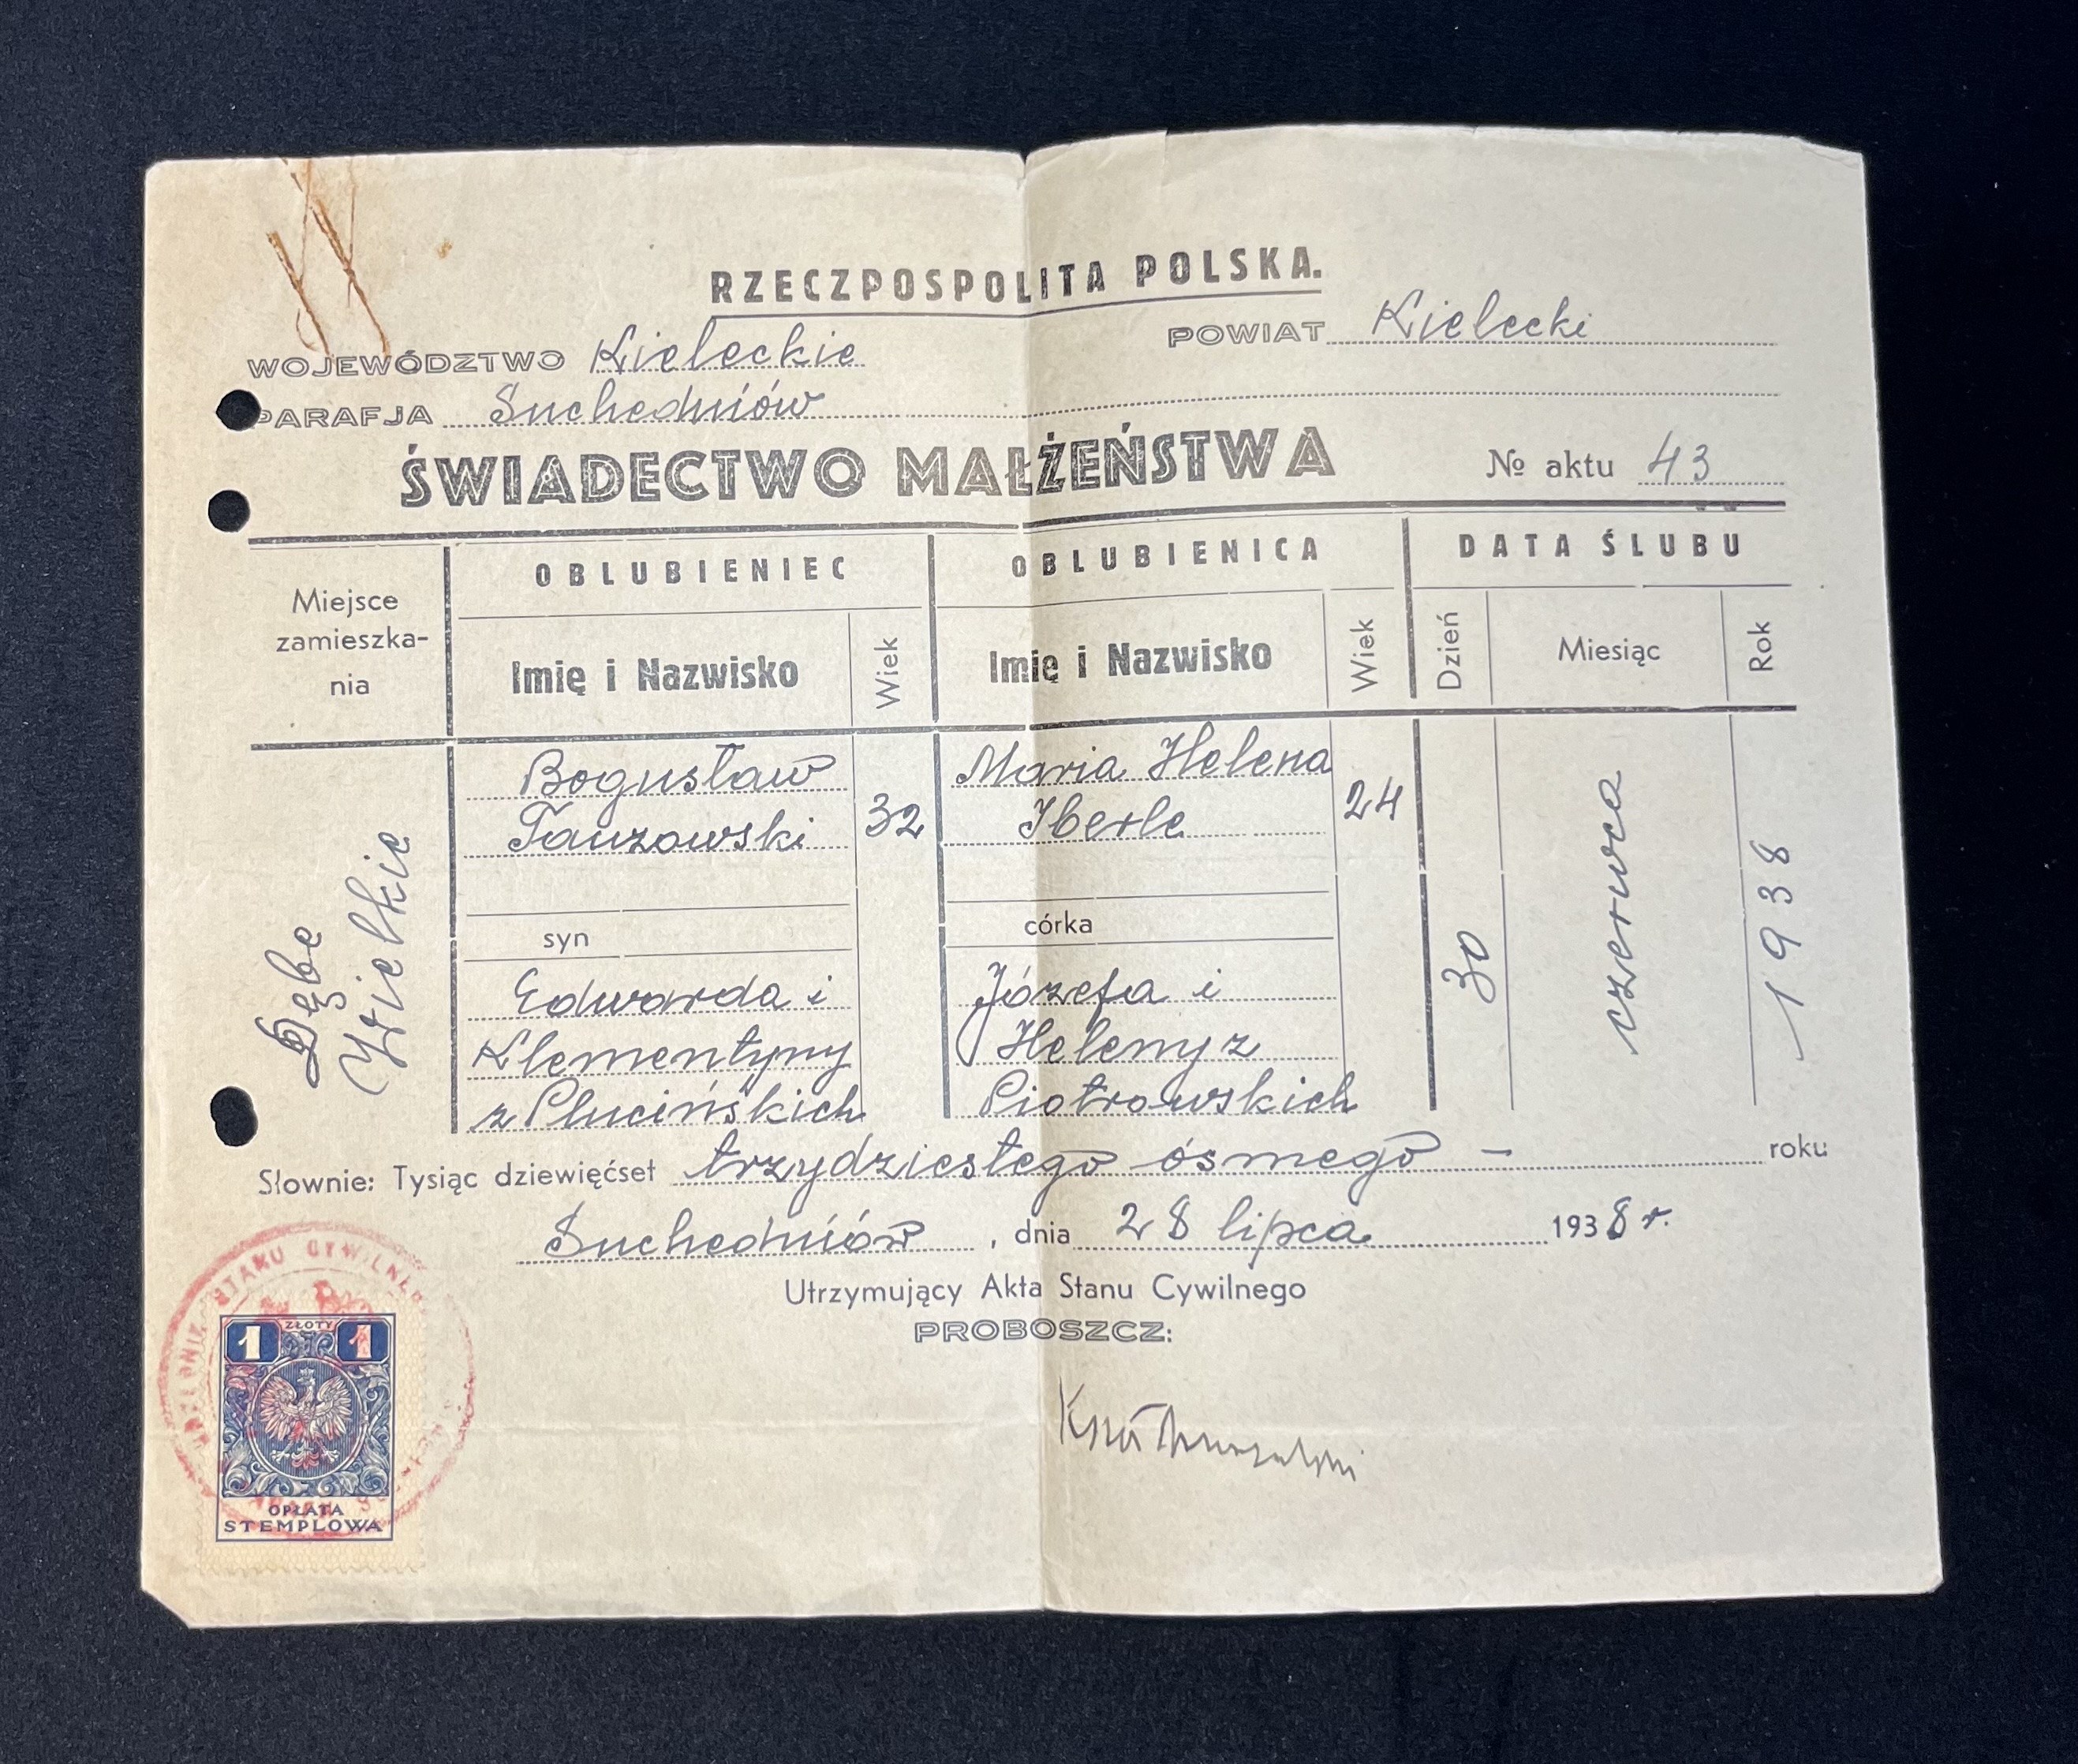 RZECZPOSPOLITA POLSKA.
WOJEWÓDZTWO Kieleckie POWIAT Kielecki
PARAFJA Suchedniów
ŚWIADECTWO MAŁŻEŃSTWA № aktu 43
Miejsce zamieszka-nia
OBLUBIENIEC
Imię i Nazwisko Wiek
OBLUBIENICA
Imię i Nazwisko Wiek
DATA ŚLUBU
Dzień Miesiąc Rok
Dębe
Wielkie
Bogusław
Tauzowski
32
syn
Edwarda i
Klementyny
z Plucińskich
Maria Helena
Iberle
24
córka
Józefa i
Heleny z
Piotrowskich
30
czerwca
1938
Słownie: Tysiąc dziewięćset trzydziestego ósmego - roku
Suchedniów, dnia 28 lipca 1938 r.
Utrzymujący Akta Stanu Cywilnego
PROBOSZCZ:
STANU CYWILNEGO
1 ZŁOTY 1
OPŁATA
STEMPLOWA